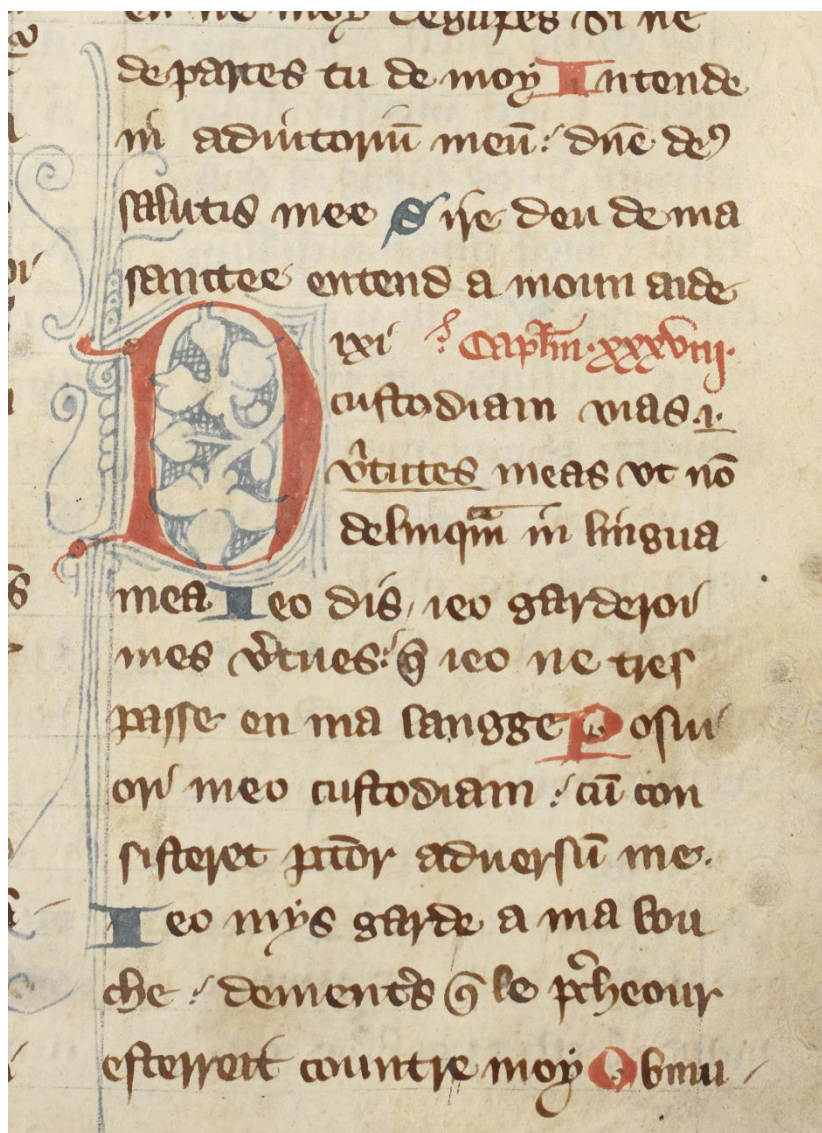 en ne moy deguꝑes Si ne
departes tu de moy Intende
in adiutoriū meū: dn̄e deꝯ
salutis mee Sire deu de ma
sanctee entend a moun aide
Dixi Cap̄lm·xxxviii·
custodiam vias .i.
v̓tutes meas vt nō
delinqᷓm in lingua
mea Ieo dis, ieo garderoi
mes v̓tues: q̄ ieo ne tres
passe en ma langge Posui
ori meo custodiam: cū con
sisteret pcc̄or aduersū me.
Ieo mys garde a ma bou
che: dement̓s q̄ le pc̓heour
esterreit countre moy Obmu